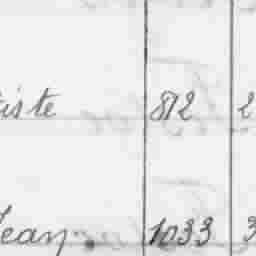 iste 812 2
Jean 1033 3